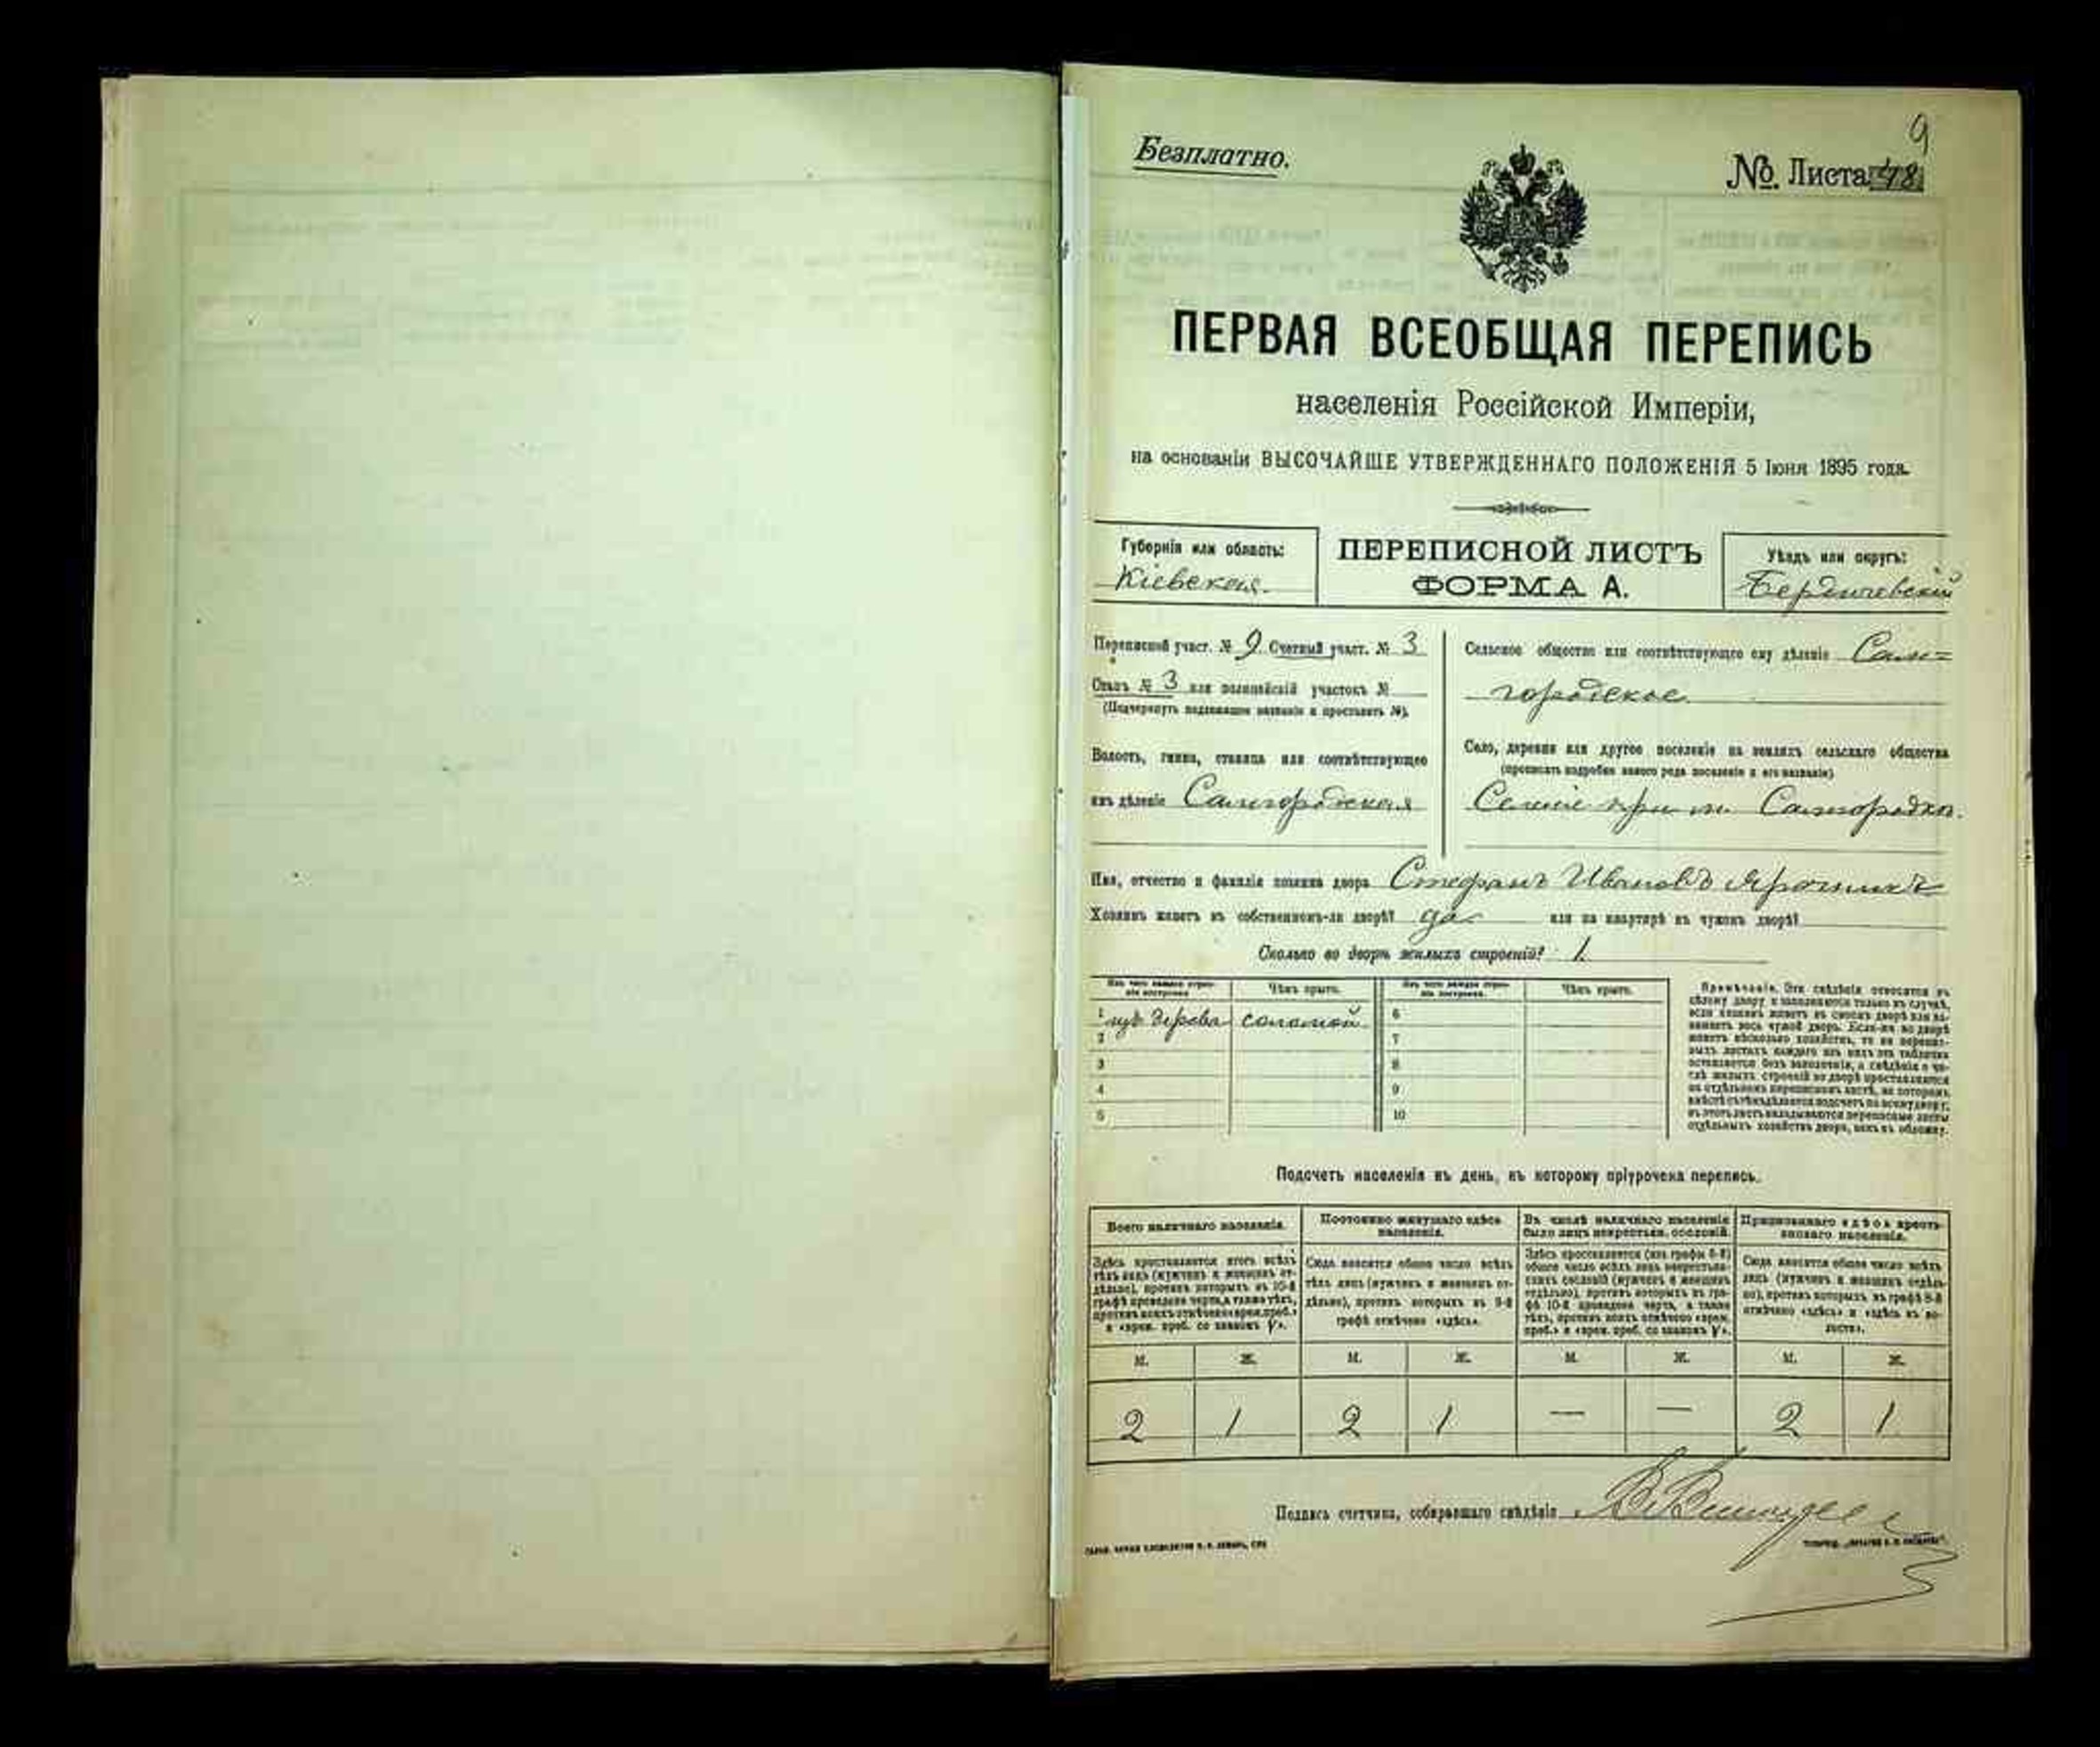 9
Безплатно.
№. Листа 48
ПЕРВАЯ ВСЕОБЩАЯ ПЕРЕПИСЬ
населенія Россійской Имперіи,
на основаніи ВЫСОЧАЙШЕ УТВЕРЖДЕННАГО ПОЛОЖЕНІЯ 5 Іюня 1895 года.
Губернія или область:
Кіевская.
ПЕРЕПИСНОЙ ЛИСТЪ
ФОРМА А.
Уѣздъ или округъ:
Бердичевскій
Переписной участ. № 9 Счетный участ. № 3
Станъ № 3 или полицейскій участокъ №
(Подчеркнуть надлежащее названіе и проставить №).
Волость, гмина, станица или соотвѣтствующее
имъ дѣленіе Самгородская
Сельское общество или соотвѣтствующее ему дѣленіе Сам=
городское.
Село, деревня или другое поселеніе на земляхъ сельскаго общества
(прописать подробно какого рода поселеніе и его названіе)
Селеніе при м. Самгородкѣ.
Имя, отчество и фамилія хозяина двора Стефанъ Ивановъ
Хозяинъ живетъ въ собственномъ-ли дворѣ? да или на квартирѣ въ чужомъ дворѣ?
Сколько во дворѣ жилыхъ строеній? 1.
Изъ чего каждое строе-
ніе построено
Чѣмъ крыто.
Изъ чего каждое строе-
ніе построено.
Чѣмъ крыто.
1 изъ дерева соломой 6
2 7
3 8
4 9
5 10
Примѣчаніе. Эти свѣдѣнія относятся къ
цѣлому двору и заполняются только въ случаѣ,
если хозяинъ живетъ въ своемъ дворѣ или за-
нимаетъ весь чужой дворъ. Если-же во дворѣ
живетъ нѣсколько хозяйствъ, то на перепис-
ныхъ листахъ каждаго изъ нихъ эта табличка
оставляется безъ заполненія, а свѣдѣнія о чи-
слѣ жилыхъ строеній во дворѣ проставляются
на отдѣльномъ переписномъ листѣ, на которомъ
вмѣстѣ съ тѣмъ дѣлается подсчетъ по всему двору;
въ этотъ листъ вкладываются переписные листы
отдѣльныхъ хозяйствъ двора, какъ въ обложку.
Подсчетъ населенія въ день, къ которому пріурочена перепись.
Всего наличнаго населенія.
Здѣсь проставляется итогъ всѣхъ
тѣхъ лицъ (мужчинъ и женщинъ от-
дѣльно), противъ которыхъ въ 10-й
графѣ проведена черта, а также тѣхъ,
противъ коихъ отмѣчено «врем. проб.»
и «врем. проб. со знакомъ V».
Постоянно живущаго здѣсь
населенія.
Сюда вносится общее число всѣхъ
тѣхъ лицъ (мужчинъ и женщинъ от-
дѣльно), противъ которыхъ въ 9-й
графѣ отмѣчено «здѣсь».
Въ числѣ наличнаго населенія
было лицъ некрестьян. сословій.
Здѣсь проставляется (изъ графы 6-й)
общее число всѣхъ лицъ некрестьян-
скихъ сословій (мужчинъ и женщинъ
отдѣльно), противъ которыхъ въ гра-
фѣ 10-й проведена черта, а также
тѣхъ, противъ коихъ отмѣчено «врем.
проб.» и «врем. проб. со знакомъ V».
Приписаннаго здѣсь кресть-
янскаго населенія.
Сюда вносится общее число всѣхъ
лицъ (мужчинъ и женщинъ отдѣль-
но), противъ которыхъ въ графѣ 8-й
отмѣчено «здѣсь» и «здѣсь въ во-
лости».
М. Ж. М. Ж. М. Ж. М. Ж.
2 1 2 1 — — 2 1
Подпись счетчика, собиравшаго свѣдѣнія